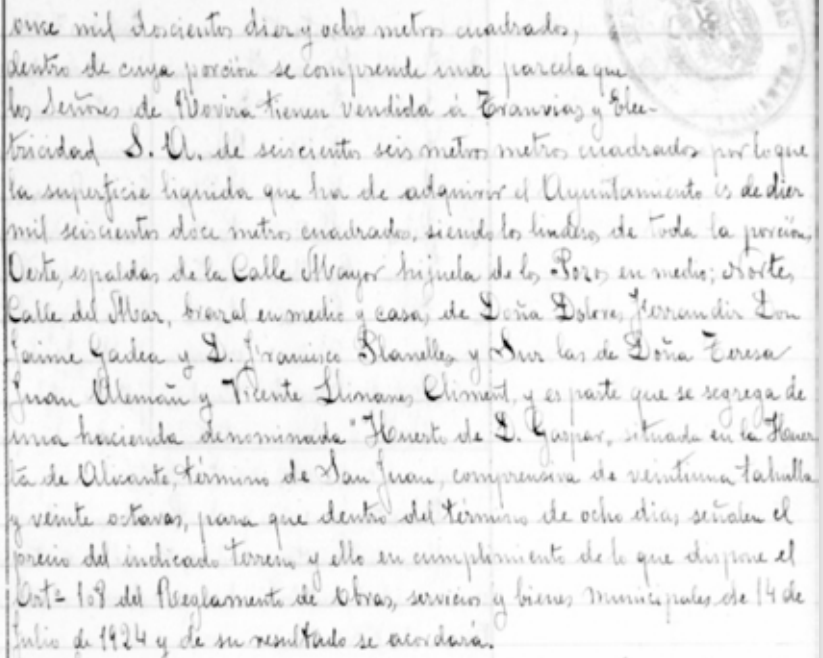 once mil doscientos diez y ocho metros cuadrados,
dentro de cuya porción se comprende una parcela que
los Señores de Rovira tienen vendida á Tranvias y Elec-
tricidad S. A. de seiscientos seis metros metros cuadrados por lo que
la superficie liquida que ha de adquirir el Ayuntamiento es de diez
mil seiscientos doce metros cuadrados, siendo los linderos de toda la porción,
Oeste, espaldas de la Calle Mayor hijuela de los Pozos en medio; Norte,
Calle del Mar, brazal en medio y casas de Doña Dolores Ferrandiz Don
Jaime Gadea y D. Francisco Planelles y Sur las de Doña Teresa
Juan Alemañ y Vicente Llinares Climent, y es parte que se segrega de
una hacienda denominada "Huerto de D. Gaspar, situada en la Huer
ta de Alicante, término de San Juan, comprensiva de veintiuna tahulla
y veinte octavas, para que dentro del término de ocho dias señalen el
precio del indicado terreno y ello en cumplimiento de lo que dispone el
Artº 108 del Reglamento de Obras, servicios y bienes municipales de 14 de
Julio de 1924 y de su resultado se acordará.